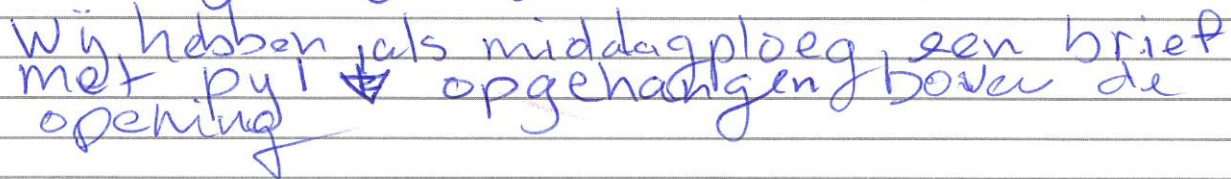 Wij hebben als middagploeg een brief
met pyl ↓ opgehangen boven de
opening